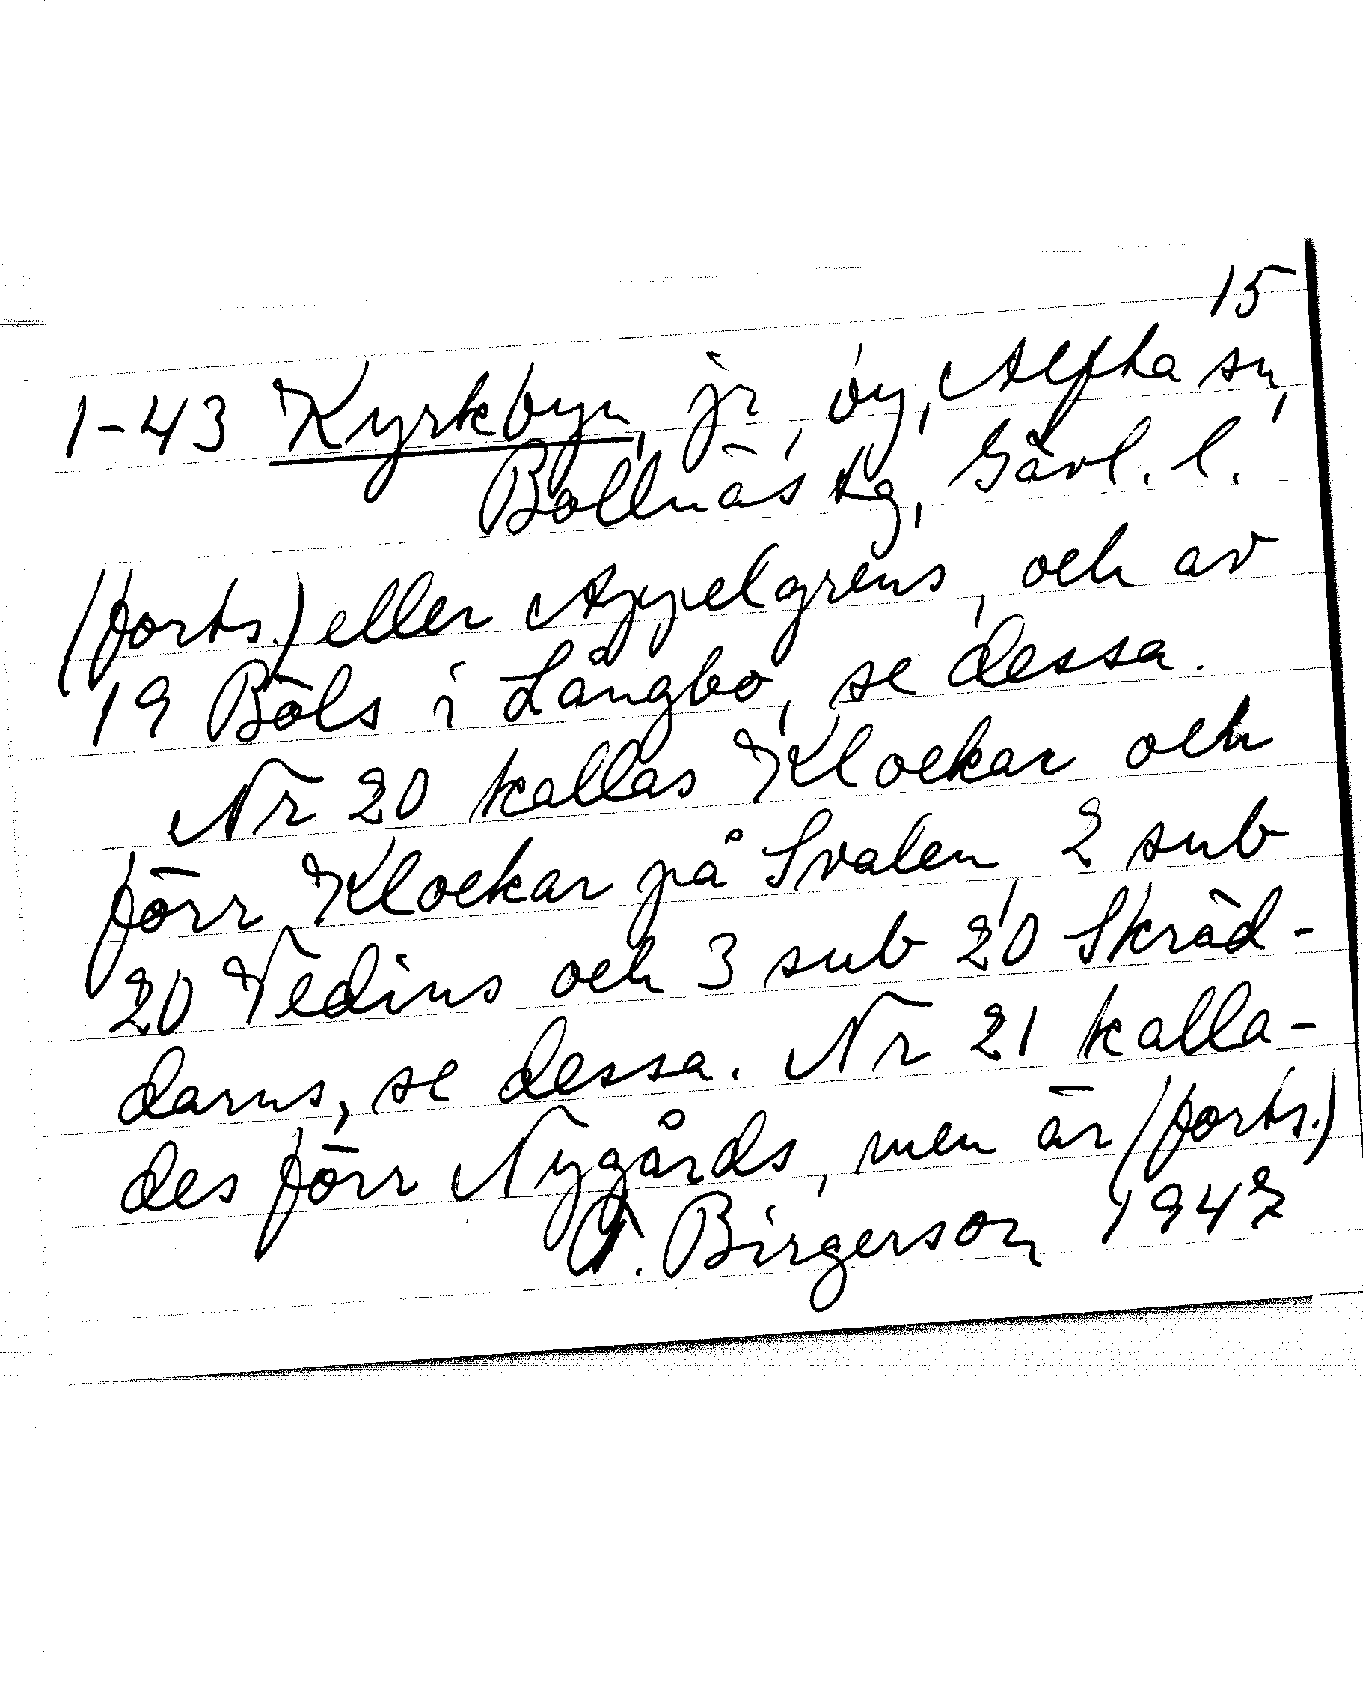 15
1-43 Kyrkbyn, jr, by, Alfta sn,
Bollnäs tg, Gävl. l.
(forts.) eller Appelgrens, och av
19 Böls i Långbo, se dessa.
Nr 20 kallas Klockar och
förr Klockar på Svalen, 2 sub
20 Vedins och 3 sub 20 Skräd-
darns, se dessa. Nr 21 kalla-
des förr Nygårds, men är (forts.)
Birgerson 1947